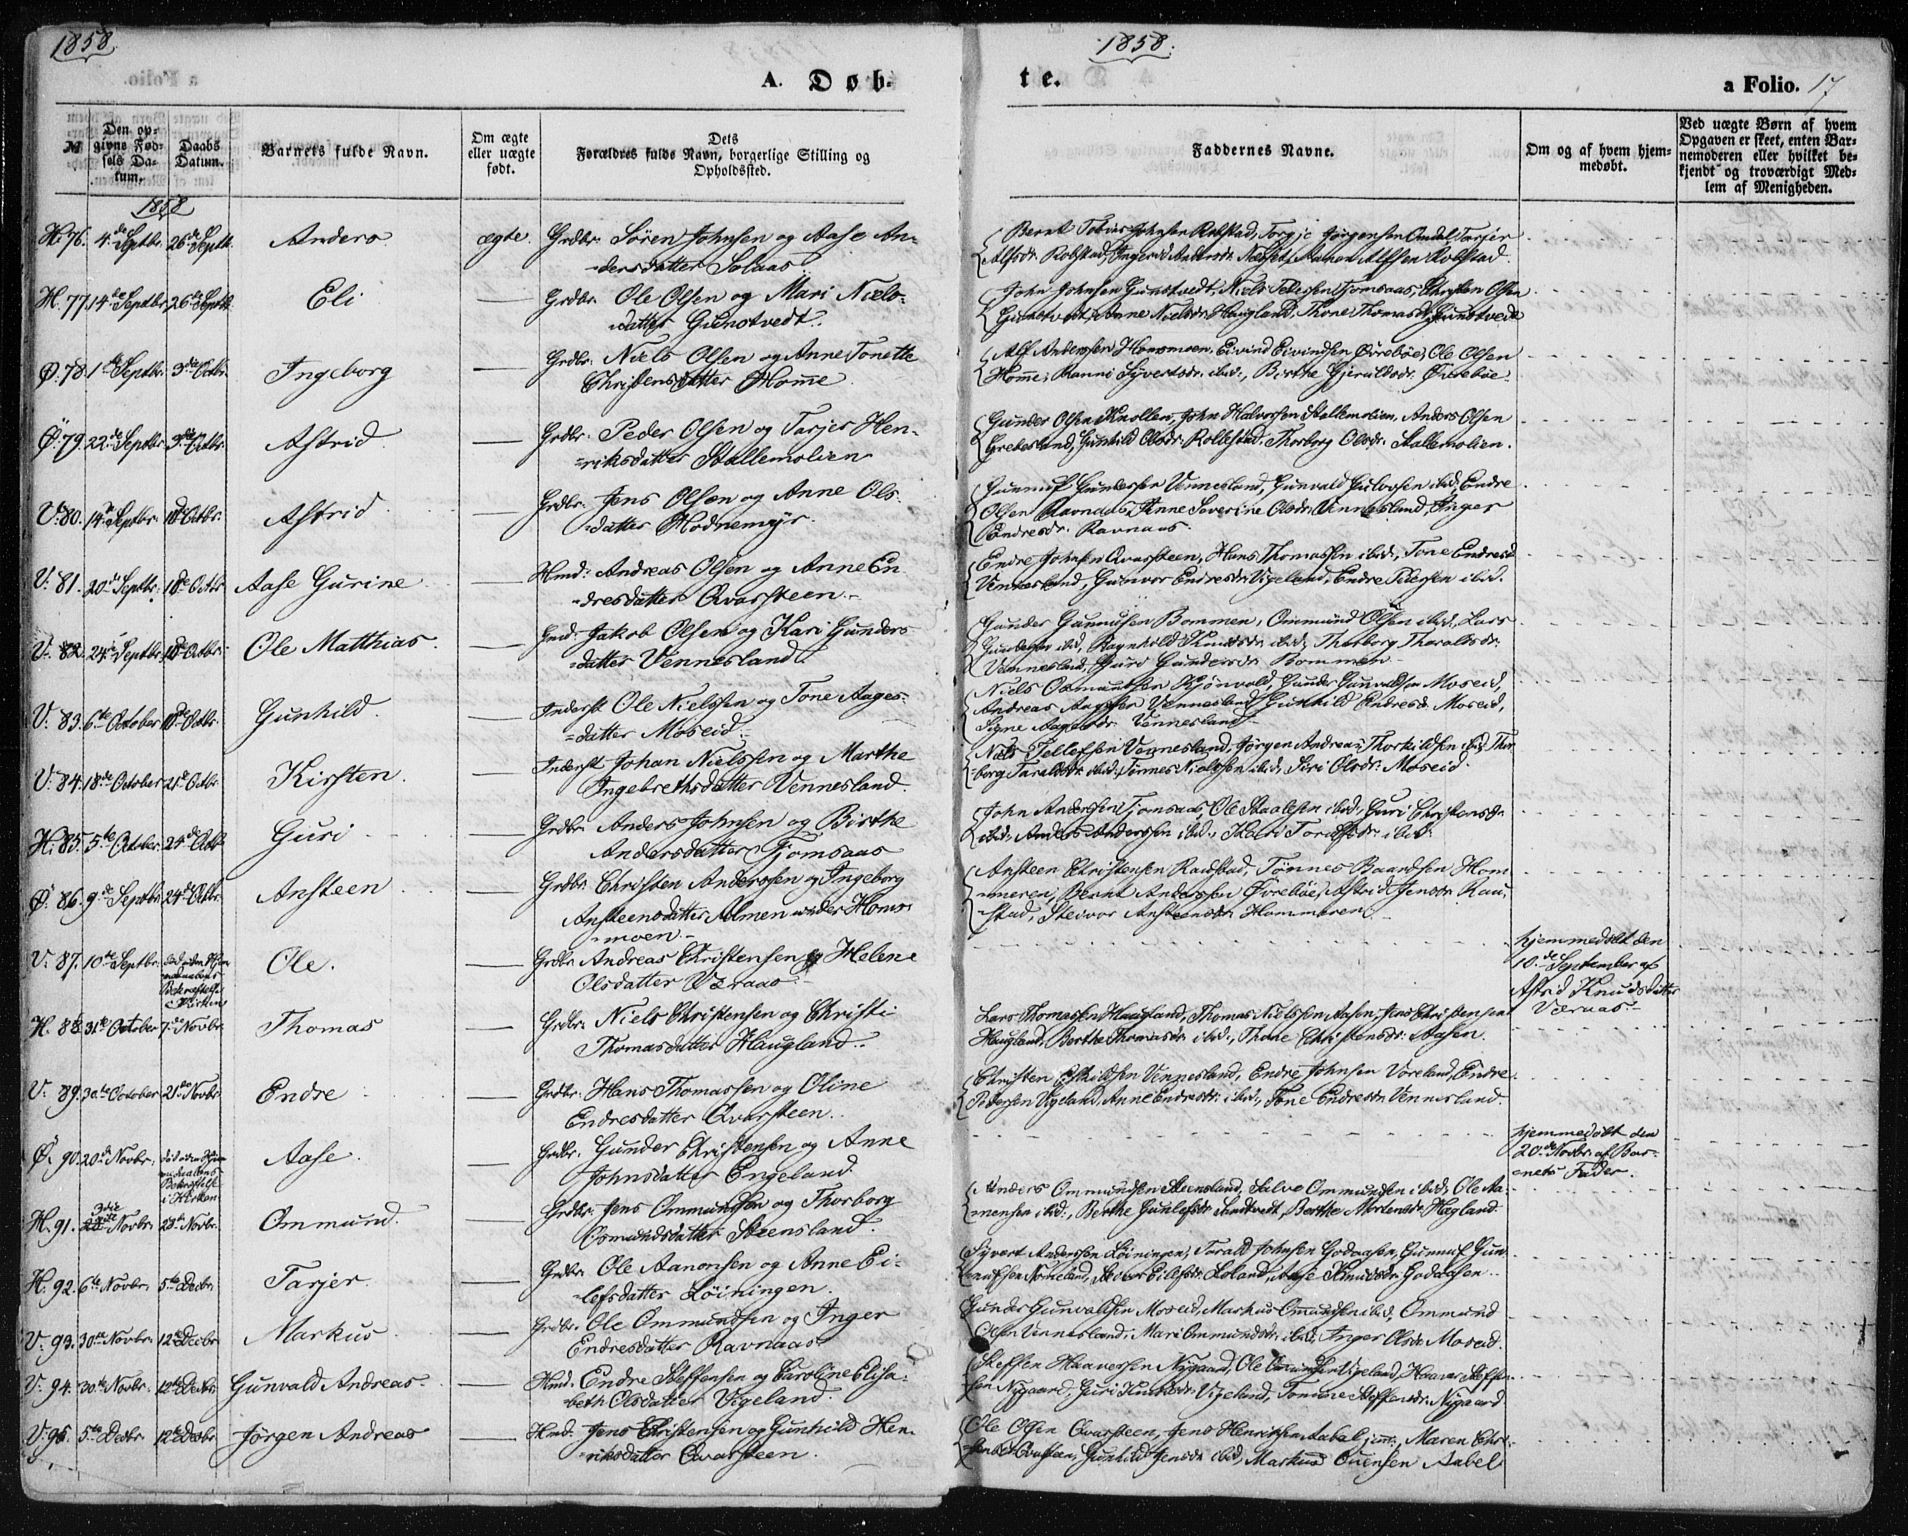 1858.
1858.
A. Døb-
te.
a Folio. 17
№
Den op-
givne Fød-
sels Da-
tum.
Daabs
Datum.
Barnets fulde Navn.
Om ægte
eller uægte
født.
Dets
Forældres fulde Navn, borgerlige Stilling og
Opholdssted.
Faddernes Navne.
Om og af hvem hjem-
medøbt.
Ved uægte Børn af hvem
Opgaven er skeet, enten Bar-
nemoderen eller hvilket be-
kjendt og troværdigt Med-
lem af Menigheden.
1858
H. 76. 4de Septbr. 26de Septb. Anders. ægte. Grdbr: Sören Johnsen og Aase An-
dersdatter Solaas.
Bernt Tobias Johnsen Robstad, Torgje Jörgensen Omdal, Tarjer
Alfsdr. Robstad, Ingerid Andersdr., Aanon Alfsen Robstad.
H. 77. 14de Septbr. 26de Septb. Eli — Grdbr: Ole Olsen og Mari Niels-
datter Gunstvedt.
John Johnsen Gunstvedt, Niels Pedersen Fjomsaas, Christen Olsen
Gunstvedt, Anne Nielsdr. Haugland, Thone Thomasdr. Gunstvedt
Ø. 78. 1ste Septbr. 3de Octbr. Ingeborg — Grdbr: Niels Olsen og Anne Tonette
Christensdatter Homme.
Alf Anderssen Homsmoen, Eivind Eivindsen Övrebøe, Ole Olsen
Homme, Ranni Syvertsdr. ibid., Birthe Gjeruldsdr. Övrebøe.
Ø. 79. 22de Septbr. 3de Octbr. Astrid — Grdbr: Peder Olsen og Tarjer Hen-
riksdatter Stallemolien
Gunder Olsen Knollen, John Halvorsen Stallemolien, Anders Olsen
Grebesland, Gunhild Olsdr. Rollestad, Thorborg Olsdr. Stallemolien.
V. 80. 14de Septbr. 10de Octbr. Astrid. — Grdbr: Jens Olsen og Anne Ols-
datter Hodnemyr.
Gunnuf Gundersen Vennesland, Gunvald ibid, Endre
Olsen Ravnaas, Anne Severine Olsdr. Vennesland, Inger
Endresdr. Ravnaas.
V. 81. 20de Septbr. 10de Octbr Aase Gurine — Hmd: Andreas Olsen og Anne En-
dresdatter Qvarsteen.
Endre Johnsen Qvarsteen, Hans Thomassen ibid., Tone Endresd.
Vennesland, Gunvor Endresdr. Vigeland, Endre Pedersen ibid.
V. 82. 24de Septbr. 10de Octbr. Ole Matthias. — Hmd: Jakob Olsen og Kari Gunders-
datter Vennesland.
Gunder Gunnufsen Bommen, Ommund Olsen ibid, Lars
Gundersen ibid, Ragnhild Knudsdr. ibid, Thorborg Tharaldsdr.
Vennesland, Guro Gundersdr. Bommen.
V. 83. 6te October 10de Octbr. Gunhild. — Inderst Ole Nielssen og Tone Aages-
datter Moseid.
Niels Osmundsen Kjönvold, Gunder Gunvaldsen Moseid,
Andreas Aagesen Vennesland, Gunhild Endresd. Moseid,
Signe Aagesdr. Vennesland
V. 84. 18de October 21de Octbr. Kirsten. — Inderst Johan Nielssen og Marthe
Ingebrethsdatter Vennesland.
Niels Tellefsen Vennesland, Jörgen Andreas Thorkildsen ibid, Thor-
borg Taraldsdr. ibid, Tønnes Nielssen ibid, Siri Olsdr. Moseid.
H. 85. 5te October. 24de Octb. Guri — Grdbr: Anders Johnsen og Birthe
Andersdatter Fjomsaas
John Anderssen Fjomsaas, Ole Staalesen ibid., Guri Christensdr.
ibid, Anders Anderssen ibid., Kari ibid.
Ø. 86. 9de Septbr. 24de Octbr. Ansteen — Grdbr: Christen Anderssen og Ingeborg
Ansteensdatter Almen under Homs-
moen.
Ansteen Christensen Raustad, Tønnes Baardsen Hom-
meren, Bernt Anderssen Övrebøe, Astrid Jensdr. Rau-
stad, Stevor Ansteensdr. Hommeren.
V. 87. 10de Septbr.
Bekræftelse
i Kirken
Ole. — Grdbr: Andreas Christensen og Helene
Olsdatter Væraas.
hjemmedøbt den
10de September af
Astrid Knudsdatter
Væraas.
H. 88. 31te October 7de Novbr. Thomas — Grdbr: Niels Christensen og Christi
Thomasdatter Haugland.
Lars Thomassen Haugland, Thomas Nielssen Aasen, Jens Christensen
Haugland, Berthe Thomasdr. ibid., Thone Christensdr. Aasen.
V. 89. 30te October 21de Novbr. Endre — Grdbr: Hans Thomassen og Oline
Endresdatter Qvarsteen.
Christen Eskildsen Vennesland, Endre Johnsen Voreland, Endre
Pedersen Vigeland, Anne Endresdr. ibid., Tone Endresdr. Vennesland.
Ø. 90. 20de Novbr.
Bekræftelse
i Kirken
Aase. — Grdbr. Gunder Christensen og Anne
Johnsdatter Engeland.
hjemmedøbt den
20de Novbr. af Bar-
nets Fader.
H. 91. Novbr. 28de Novbr. Ommund. — Grdbr: Jens Ommundsen og Thorborg
Osmundsdatter Steensland.
Anders Ommundsen Steensland, Salve Ommundsen ibid, Ole Aa-
mensen ibid., Berthe Gunlefsdr., Berthe Mortensdr. Hægland
H. 92. 6te Novbr. 5te Decbr. Tarjer — Grdbr: Ole Aanonsen og Anne Ei-
lefsdatter Löiningen.
Syvert Anderssen Löiningen, Tarald Johnsen Godaasen, Gunnuf Gun-
, Aase Knudsdr. Godaasen.
V. 93. 30te Novbr. 12te Decbr. Markus — Grdbr. Ole Ommundsen og Inger
Endresdatter Ravnaas
Gunder Gunvaldsen Moseid, Markus Omundsen ibid, Ommund
Olsen Vennesland, Mari Ommundsdr. ibid, Inger Olsdr. Moseid.
V. 94. 30te Novbr. 12te Decbr. Gunvald Andreas. — Hmd: Endre Steffensen og Caroline Elisa-
beth Olsdatter Vigeland
Steffen Haaversen Nygaard, Ole Vigeland, Haaver Steffen-
sen Nygaard, Guri Knudsdr. Vigeland, Tomine Steffensdr. Nygaard
V. 95. 5te Decbr. 12te Decbr Jørgen Andreas — Hmd: Jens Christensen og Gunhild Hen-
riksdatter Qvarsteen.
Ole Olsen Qvarsteen, Jens Henriksen Aabel, Maren Chri-
Qvarsteen, Gunhild Jensdr. ibid, Markus Evensen Aabel